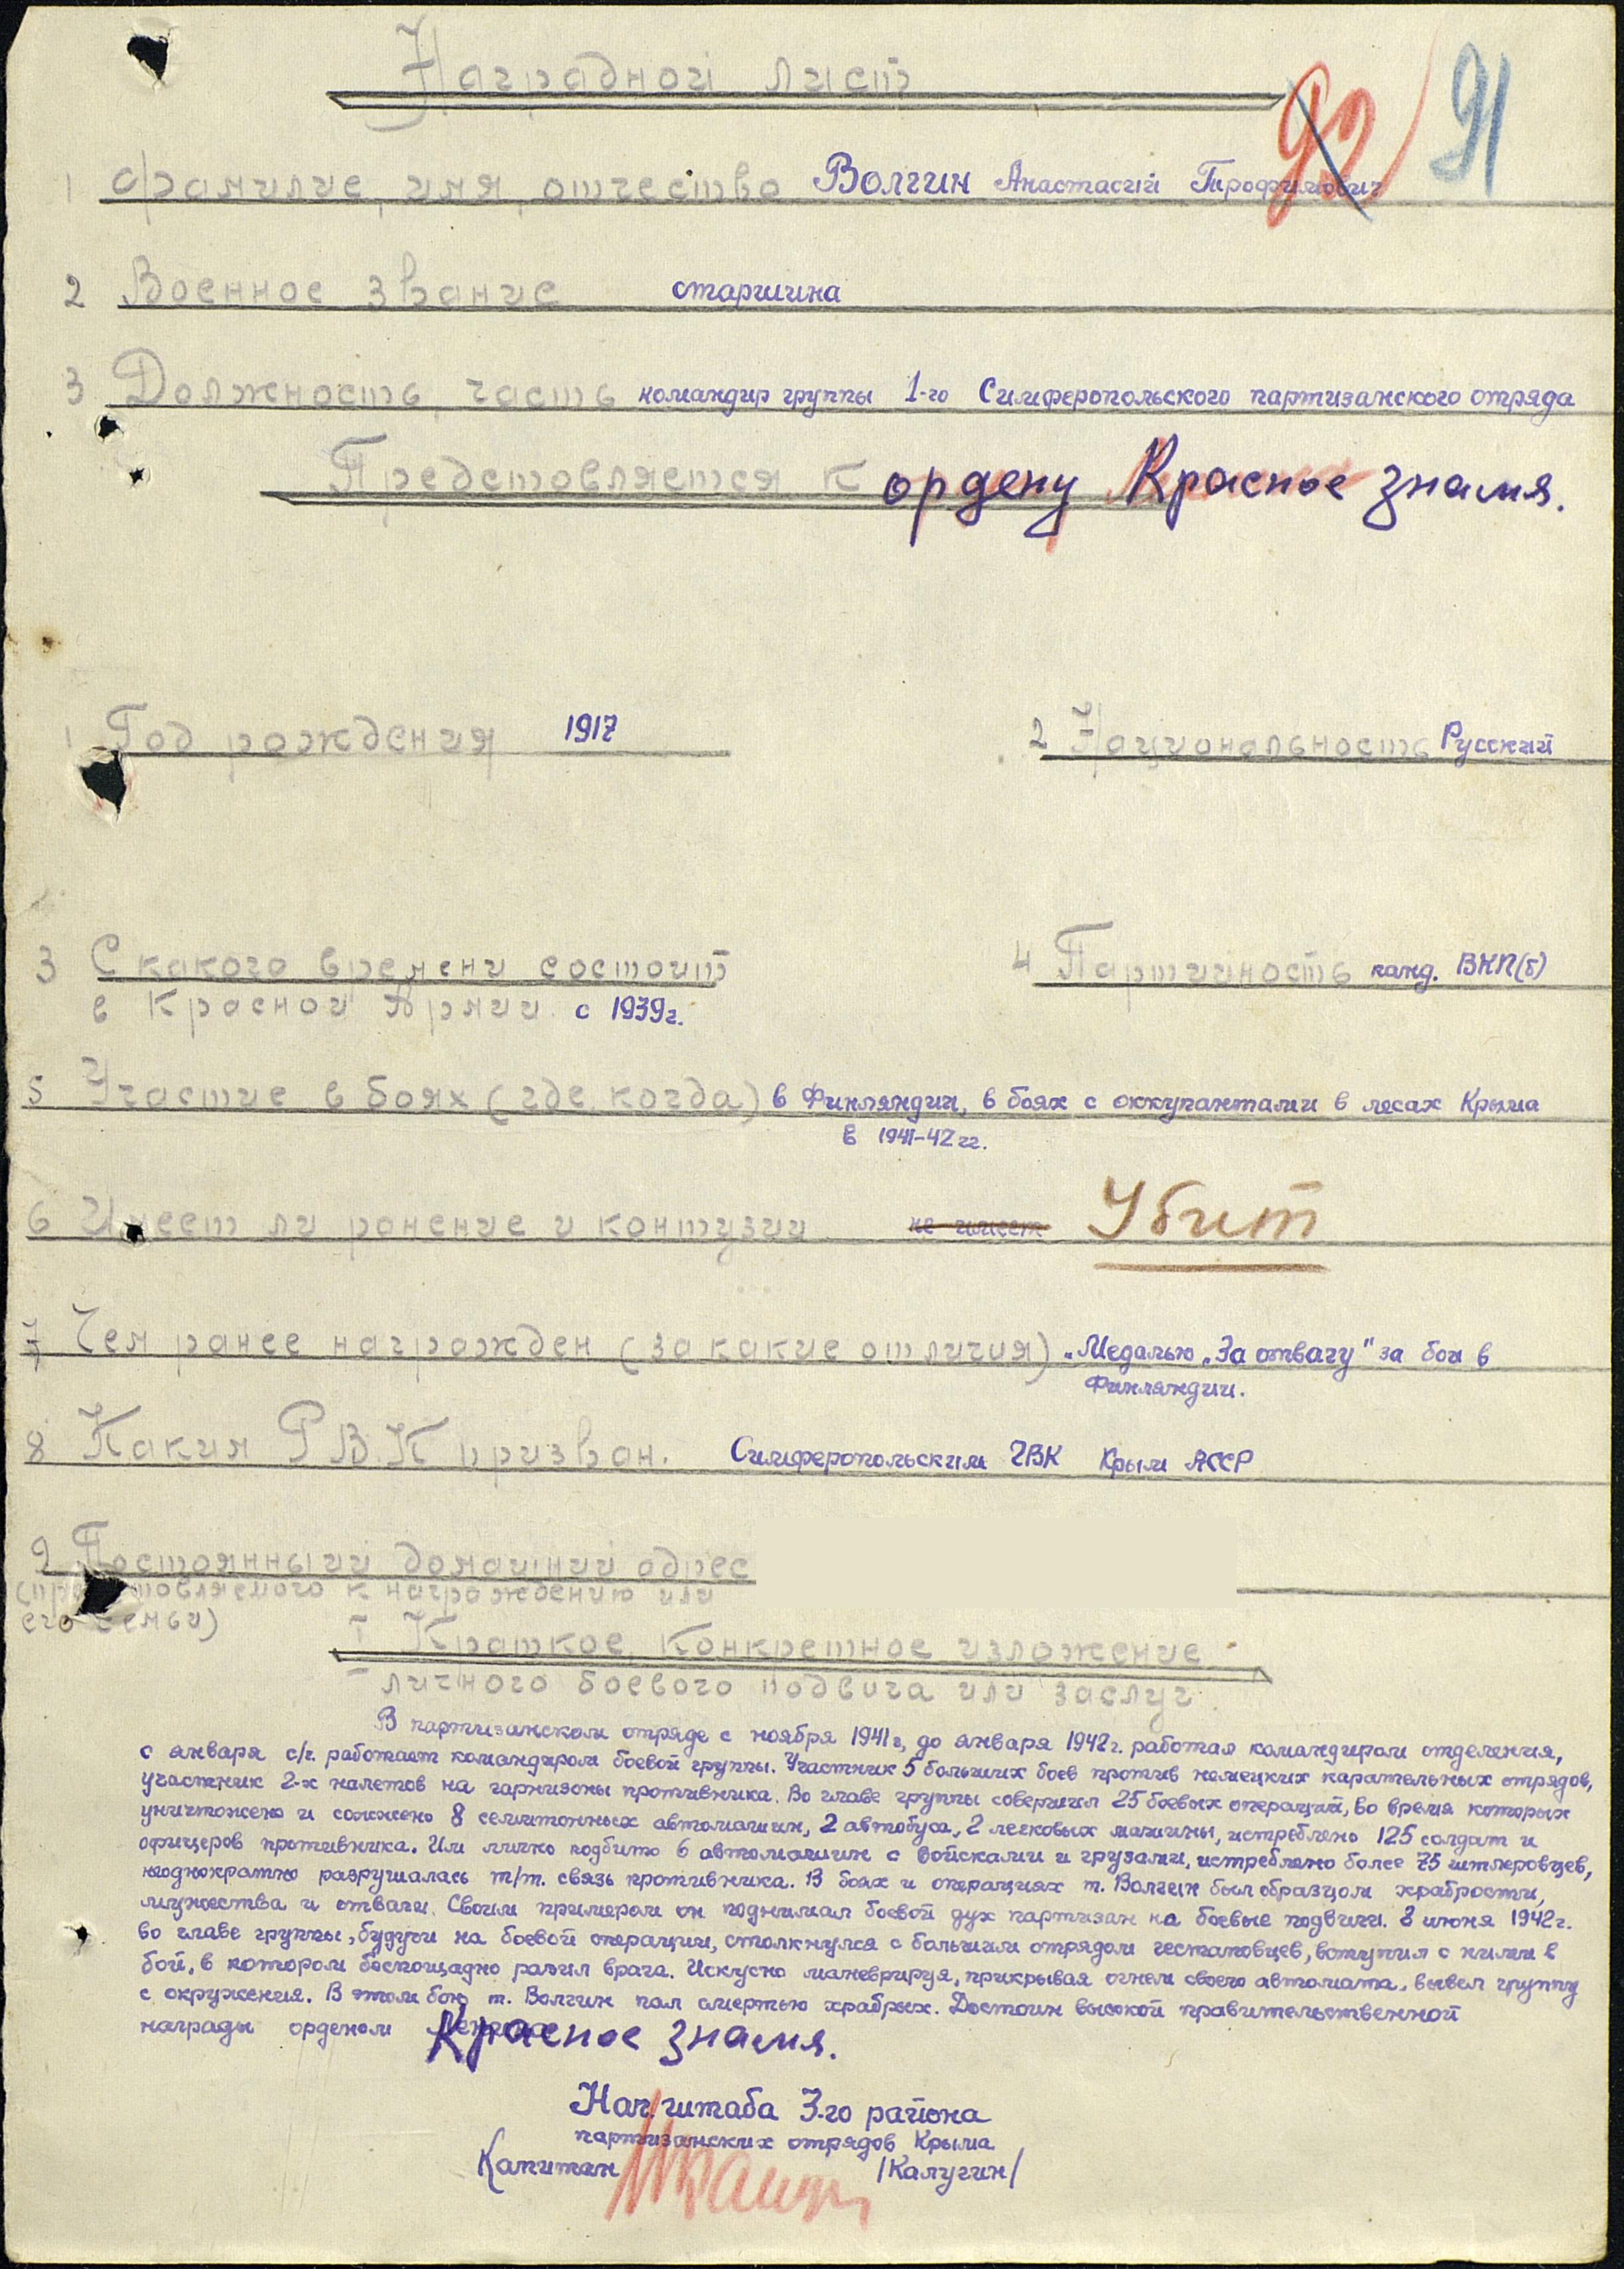 Наградной лист
92 91
1 Фамилие, имя, отчество Волгин Анастасий Трофимович
2 Военное звание старшина
3 Должность, часть командир группы 1-го Симферопольского партизанского отряда
Представляется к ордену Красное знамя.
1 Год рождения 1917
2 Национальность Русский
3 С какого времени состоит
в Красной Армии с 1939г.
4 Партийность канд. ВКП(б)
5 Участие в боях (где, когда) в Финляндии, в боях с оккупантами в лесах Крыма
в 1941-42 гг.
6 Имеет ли ранение и контузии не имеет Убит
7 Чем ранее награжден (за какие отличия) „Медалью „За отвагу" за бои в
Финляндии.
8 Каким Р.В.К призван. Симферопольским ГВК Крым АССР
9 Постоянный домашний адрес
(представляемого к награждению или
его семьи)
I Краткое, конкретное изложение
личного боевого подвига или заслуг.
В партизанском отряде с ноября 1941г, до января 1942г. работал командиром отделения,
с января с/г. работает командиром боевой группы. Участник 5 больших боев против немецких карательных отрядов,
участник 2-х налетов на гарнизоны противника. Во главе группы совершил 25 боевых операций, во время которых
уничтожено и сожжено 8 семитонных автомашин, 2 автобуса, 2 легковых машины, истреблено 125 солдат и
офицеров противника. Им лично подбито 6 автомашин с войсками и грузами, истреблено более 75 гитлеровцев,
неоднократно разрушалась т/т. связь противника. В боях и операциях т. Волгин был образцом храбрости,
мужества и отваги. Своим примером он поднимал боевой дух партизан на боевые подвиги. 8 июня 1942г.
во главе группы, будучи на боевой операции, столкнулся с большим отрядом гестаповцев, вступил с ними в
бой, в котором беспощадно разил врага. Искусно маневрируя, прикрывая огнем своего автомата, вывел группу
с окружения. В этом бою т. Волгин пал смертью храбрых. Достоин высокой правительственной
награды орденом Красное знамя.
Нач. штаба 3-го района
партизанских отрядов Крыма
Капитан /Калугин/